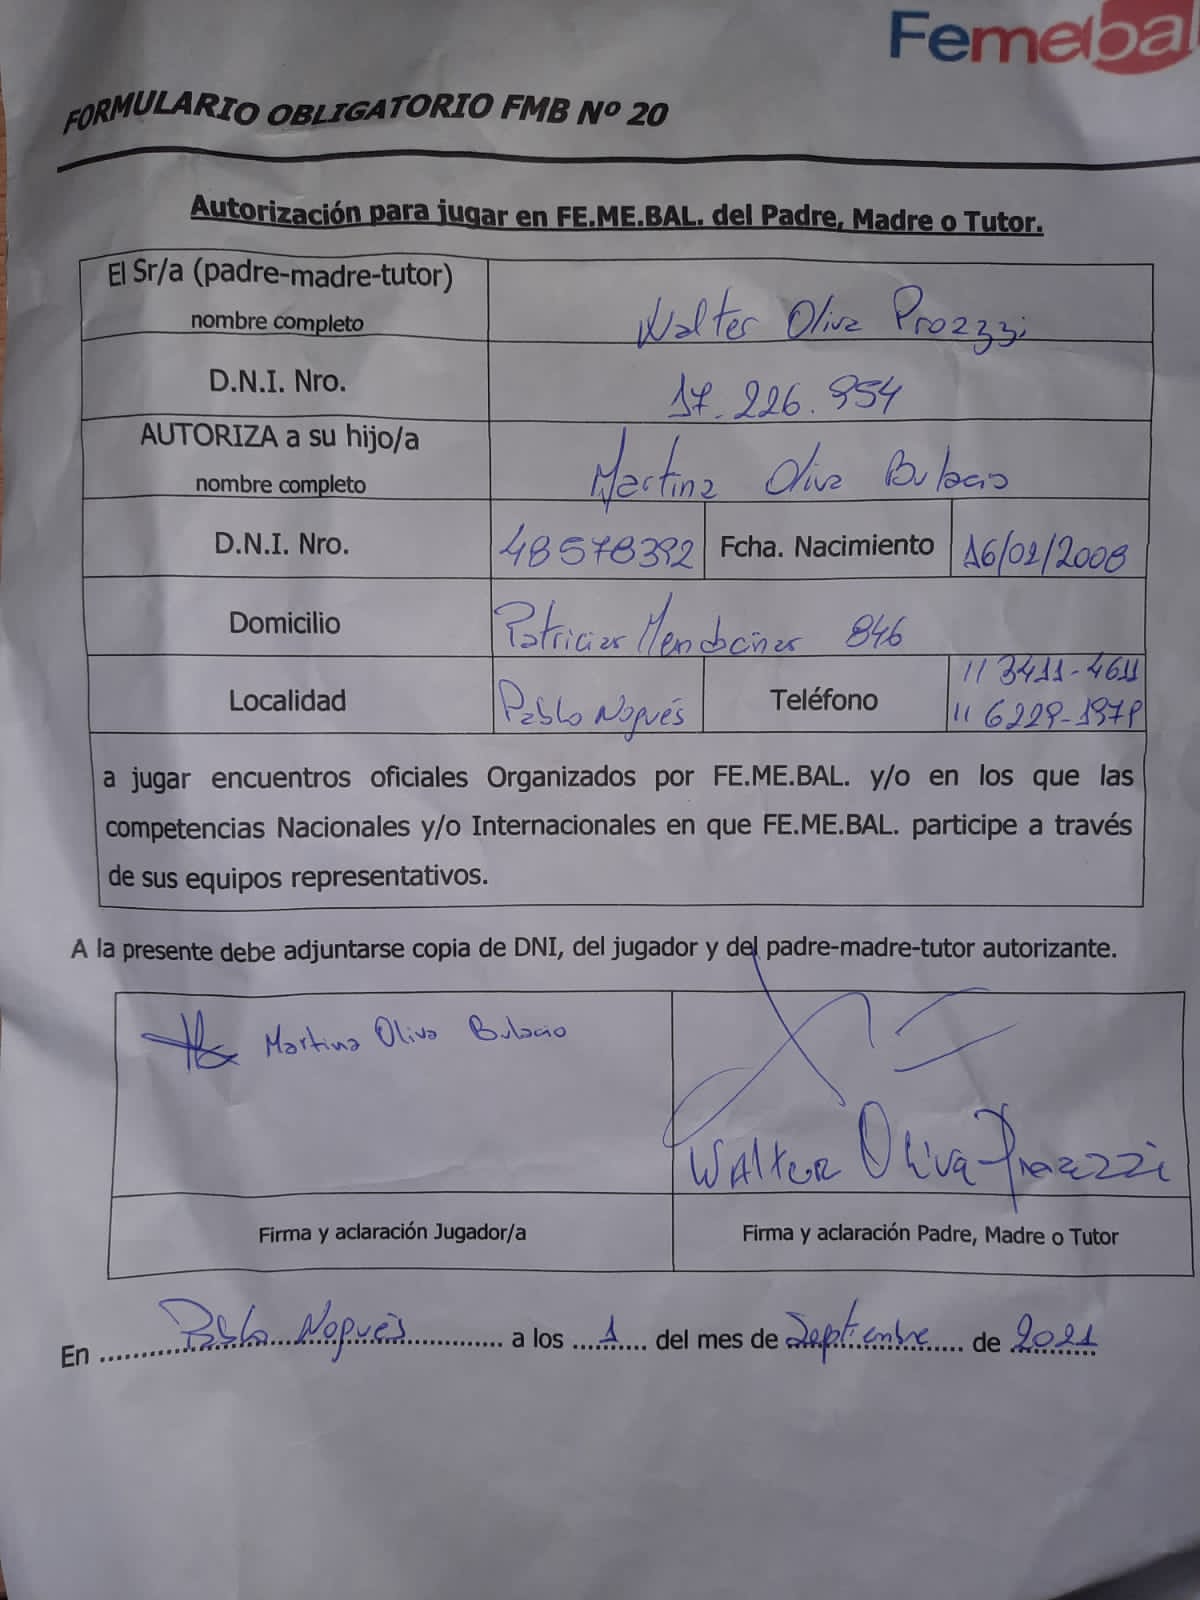 Femebal
FORMULARIO OBLIGATORIO FMB Nº 20
Autorización para jugar en FE.ME.BAL. del Padre, Madre o Tutor.
El Sr/a (padre-madre-tutor)
nombre completo
Walter Oliva Proazzi
D.N.I. Nro.
17.226.954
AUTORIZA a su hijo/a
nombre completo
Martina Oliva Bulacio
D.N.I. Nro. 48578392 Fcha. Nacimiento 16/02/2008
Domicilio Patricias Mendocinas 846
11 3411-4611
Localidad Pablo Nogués Teléfono
11 6229-1979
a jugar encuentros oficiales Organizados por FE.ME.BAL. y/o en los que las
competencias Nacionales y/o Internacionales en que FE.ME.BAL. participe a través
de sus equipos representativos.
A la presente debe adjuntarse copia de DNI, del jugador y del padre-madre-tutor autorizante.
Martina Oliva Bulacio
Walter Oliva Proazzi
Firma y aclaración Jugador/a
Firma y aclaración Padre, Madre o Tutor
En Pablo Nogués a los 1 del mes de Septiembre de 2021